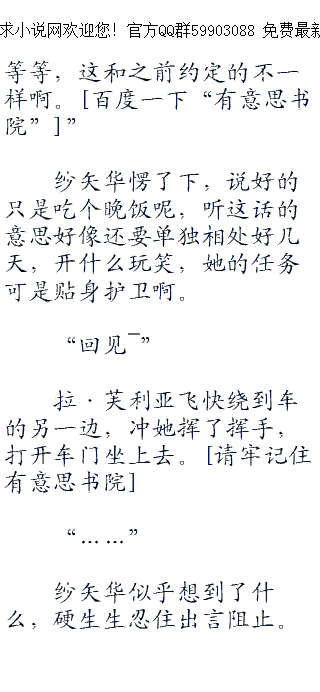 求小说网欢迎您! 官方QQ群59903088 免费最新
等等，这和之前约定的不一
样啊。[百度一下“有意思书
院”]”
纱矢华愣了下，说好的
只是吃个晚饭呢，听这话的
意思好像还要单独相处好几
天，开什么玩笑，她的任务
可是贴身护卫啊。
“回见~”
拉·芙利亚飞快绕到车
的另一边，冲她挥了挥手，
打开车门坐上去。[请牢记住
有意思书院]
“……”
纱矢华似乎想到了什
么，硬生生忍住出言阻止。